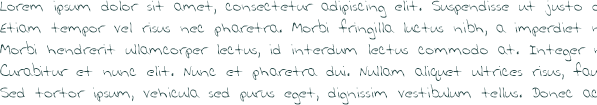 Lorem ipsum dolor sit amet, consectetur adipiscing elit. Suspendisse ut justo
Etiam tempor vel risus nec pharetra. Morbi fringilla luctus nibh, a imperdiet
Morbi hendrerit ullamcorper lectus, id interdum lectus commodo at. Integer
Curabitur et nunc elit. Nunc et pharetra dui. Nullam aliquet ultrices risus,
Sed tortor ipsum, vehicula sed purus eget, dignissim vestibulum tellus. Donec ac